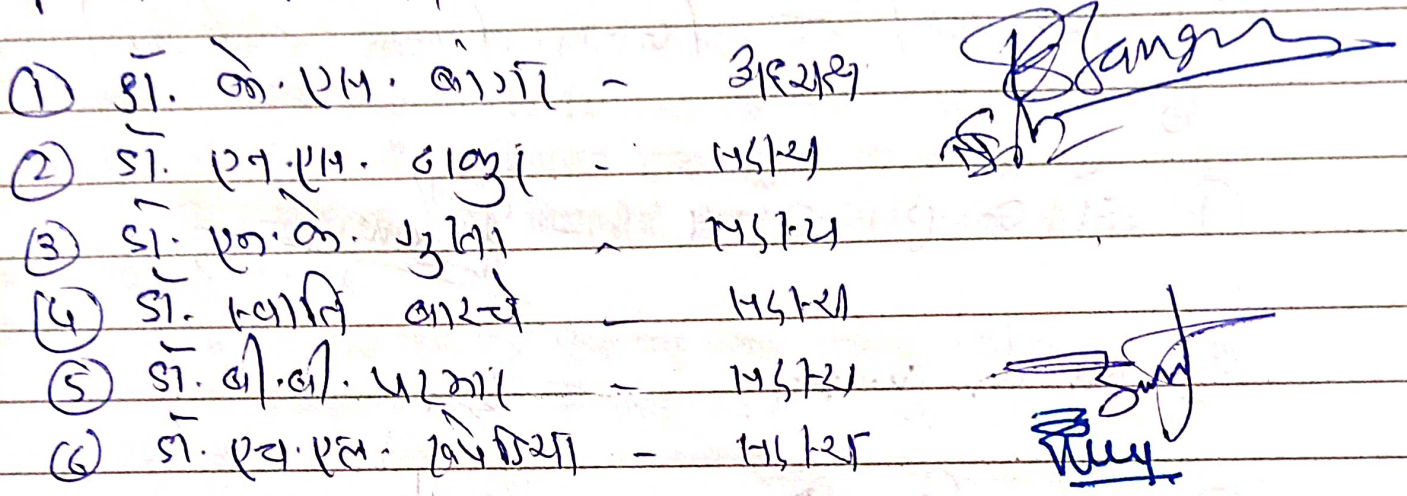 ① डॉ. के. एस. बांगर - अध्यक्ष
② डॉ. एन.एस. ठाकुर - सदस्य
③ डॉ. एन.के. गुप्ता - सदस्य
④ डॉ. स्वाति बारचे - सदस्य
⑤ डॉ. बी.बी. परमार - सदस्य
⑥ डॉ. एच.एल. खपेडिया - सदस्य